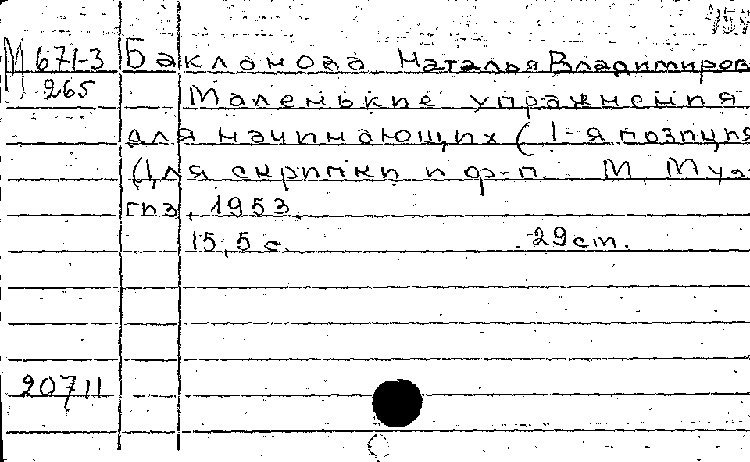 М 671-3 Бакланова Наталья Владимиров
265 Маленькие упражнения
для начинающих (1-я позиция
Для скрипки и ф-п. М. Муз-
гиз, 1953.
15,5 с. 29 см.
20711